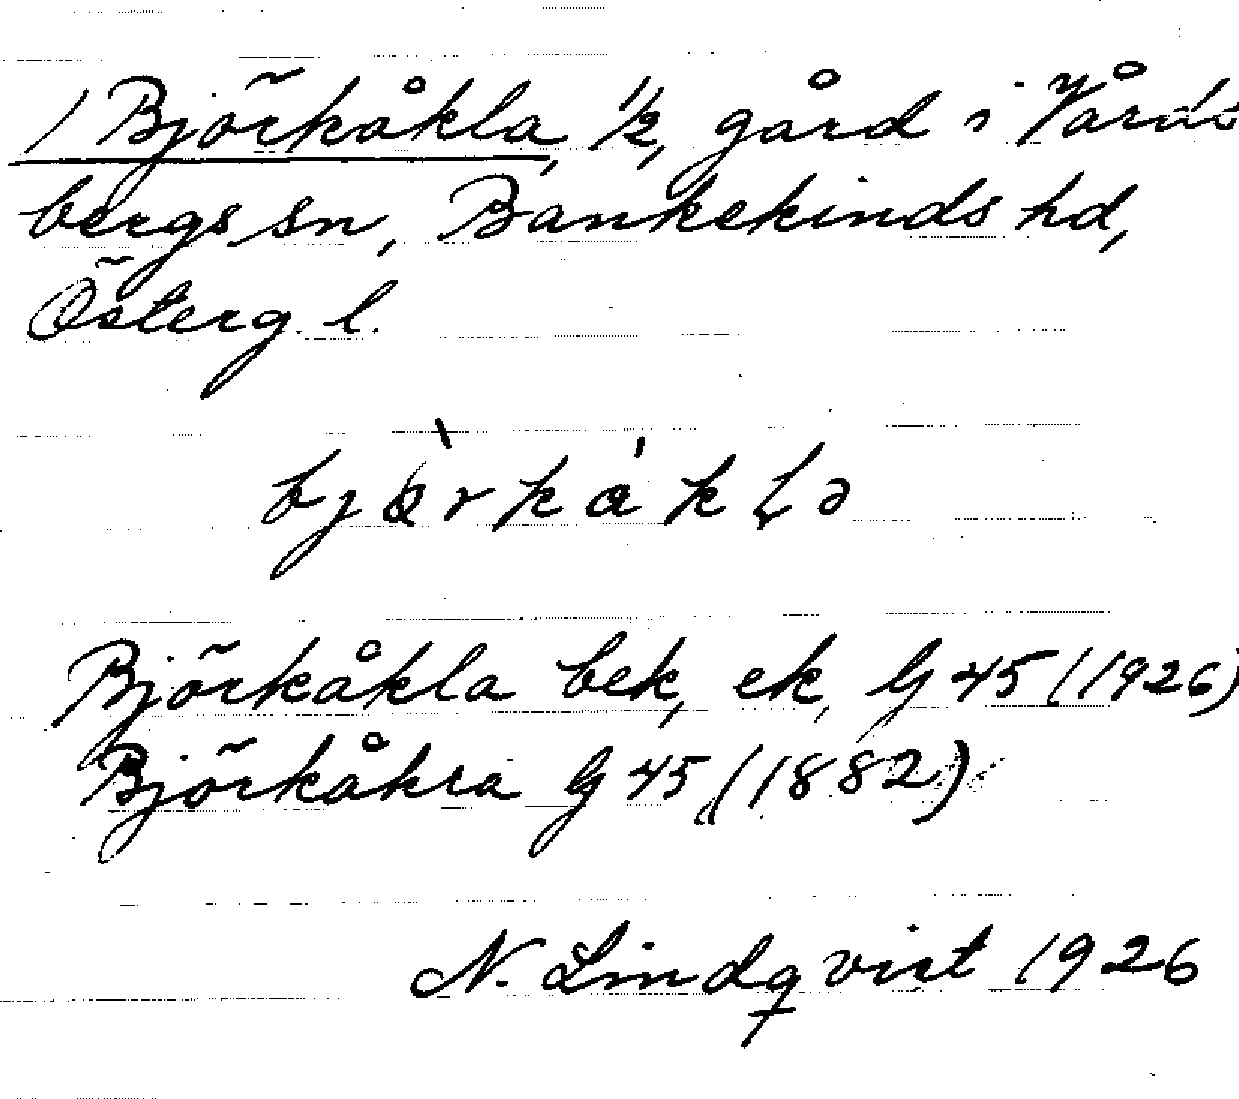 1 Björkåkla, 1/2, gård i Vårds
bergs sn, Bankekinds hd,
Österg. l.
Björkåkla bek, ek, G 45 (1926)
Björkåkra G 45 (1882)
N. Lindqvist 1926